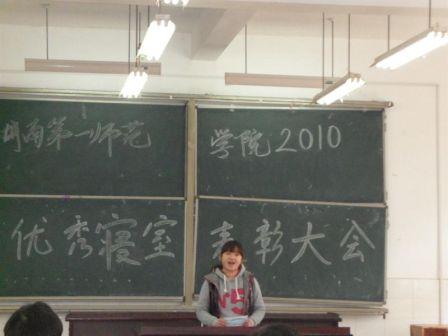 湖南第一师范 学院2010
优秀寝室 表彰大会